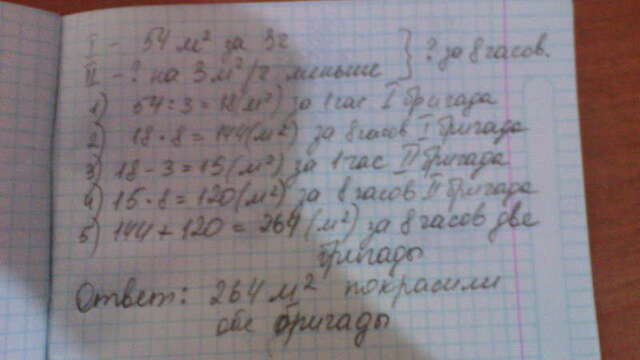 I - 54 м² за 3ч
II - ? на 3 м²/ч меньше } ? за 8 часов.
1) 54 : 3 = 18 (м²) за 1 час I бригада
2) 18 · 8 = 144 (м²) за 8 часов I бригада
3) 18 - 3 = 15 (м²) за 1 час II бригада
4) 15 · 8 = 120 (м²) за 8 часов II бригада
5) 144 + 120 = 264 (м²) за 8 часов две
бригады
Ответ: 264 м² покрасили
обе бригады